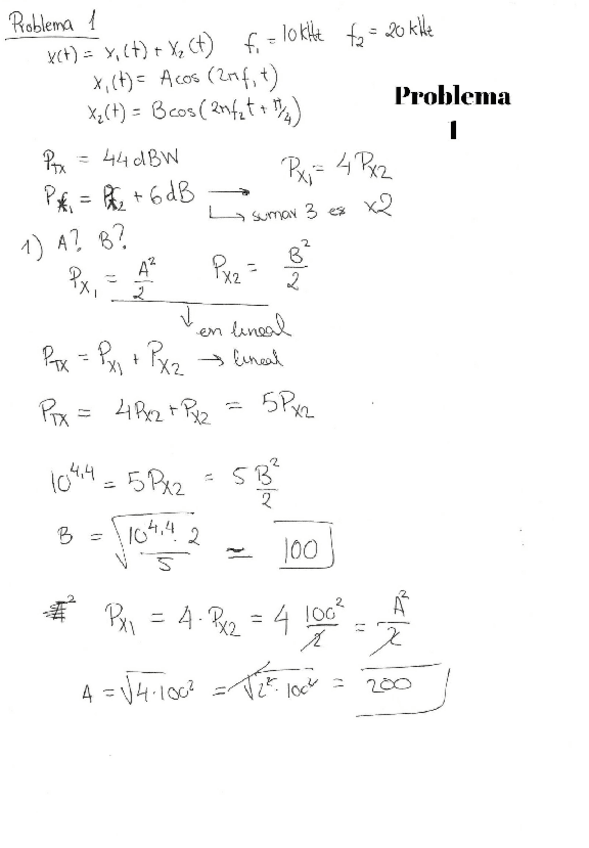 Problema 1
x(t) = x₁(t) + x₂(t) f₁ = 10 kHz f₂ = 20 kHz
x₁(t) = A cos (2πf₁t)
x₂(t) = B cos (2πf₂t + π/4)
Problema
1
P_TX = 44 dBW
P_x₁ = P_x₂ + 6 dB → P_X₁ = 4 P_X2
↳ sumar 3 es x2
1) A? B?
P_X₁ = A²/2 P_X2 = B²/2
↓ en lineal
P_TX = P_X₁ + P_X2 → lineal
P_TX = 4P_X2 + P_X2 = 5P_X2
10^4,4 = 5P_X2 = 5 B²/2
B = √(10^4,4 · 2 / 5) ≃ 100
P_X₁ = 4 · P_X2 = 4 100²/2 = A²/2
A = √(4·100²) = √(2²·100²) = 200